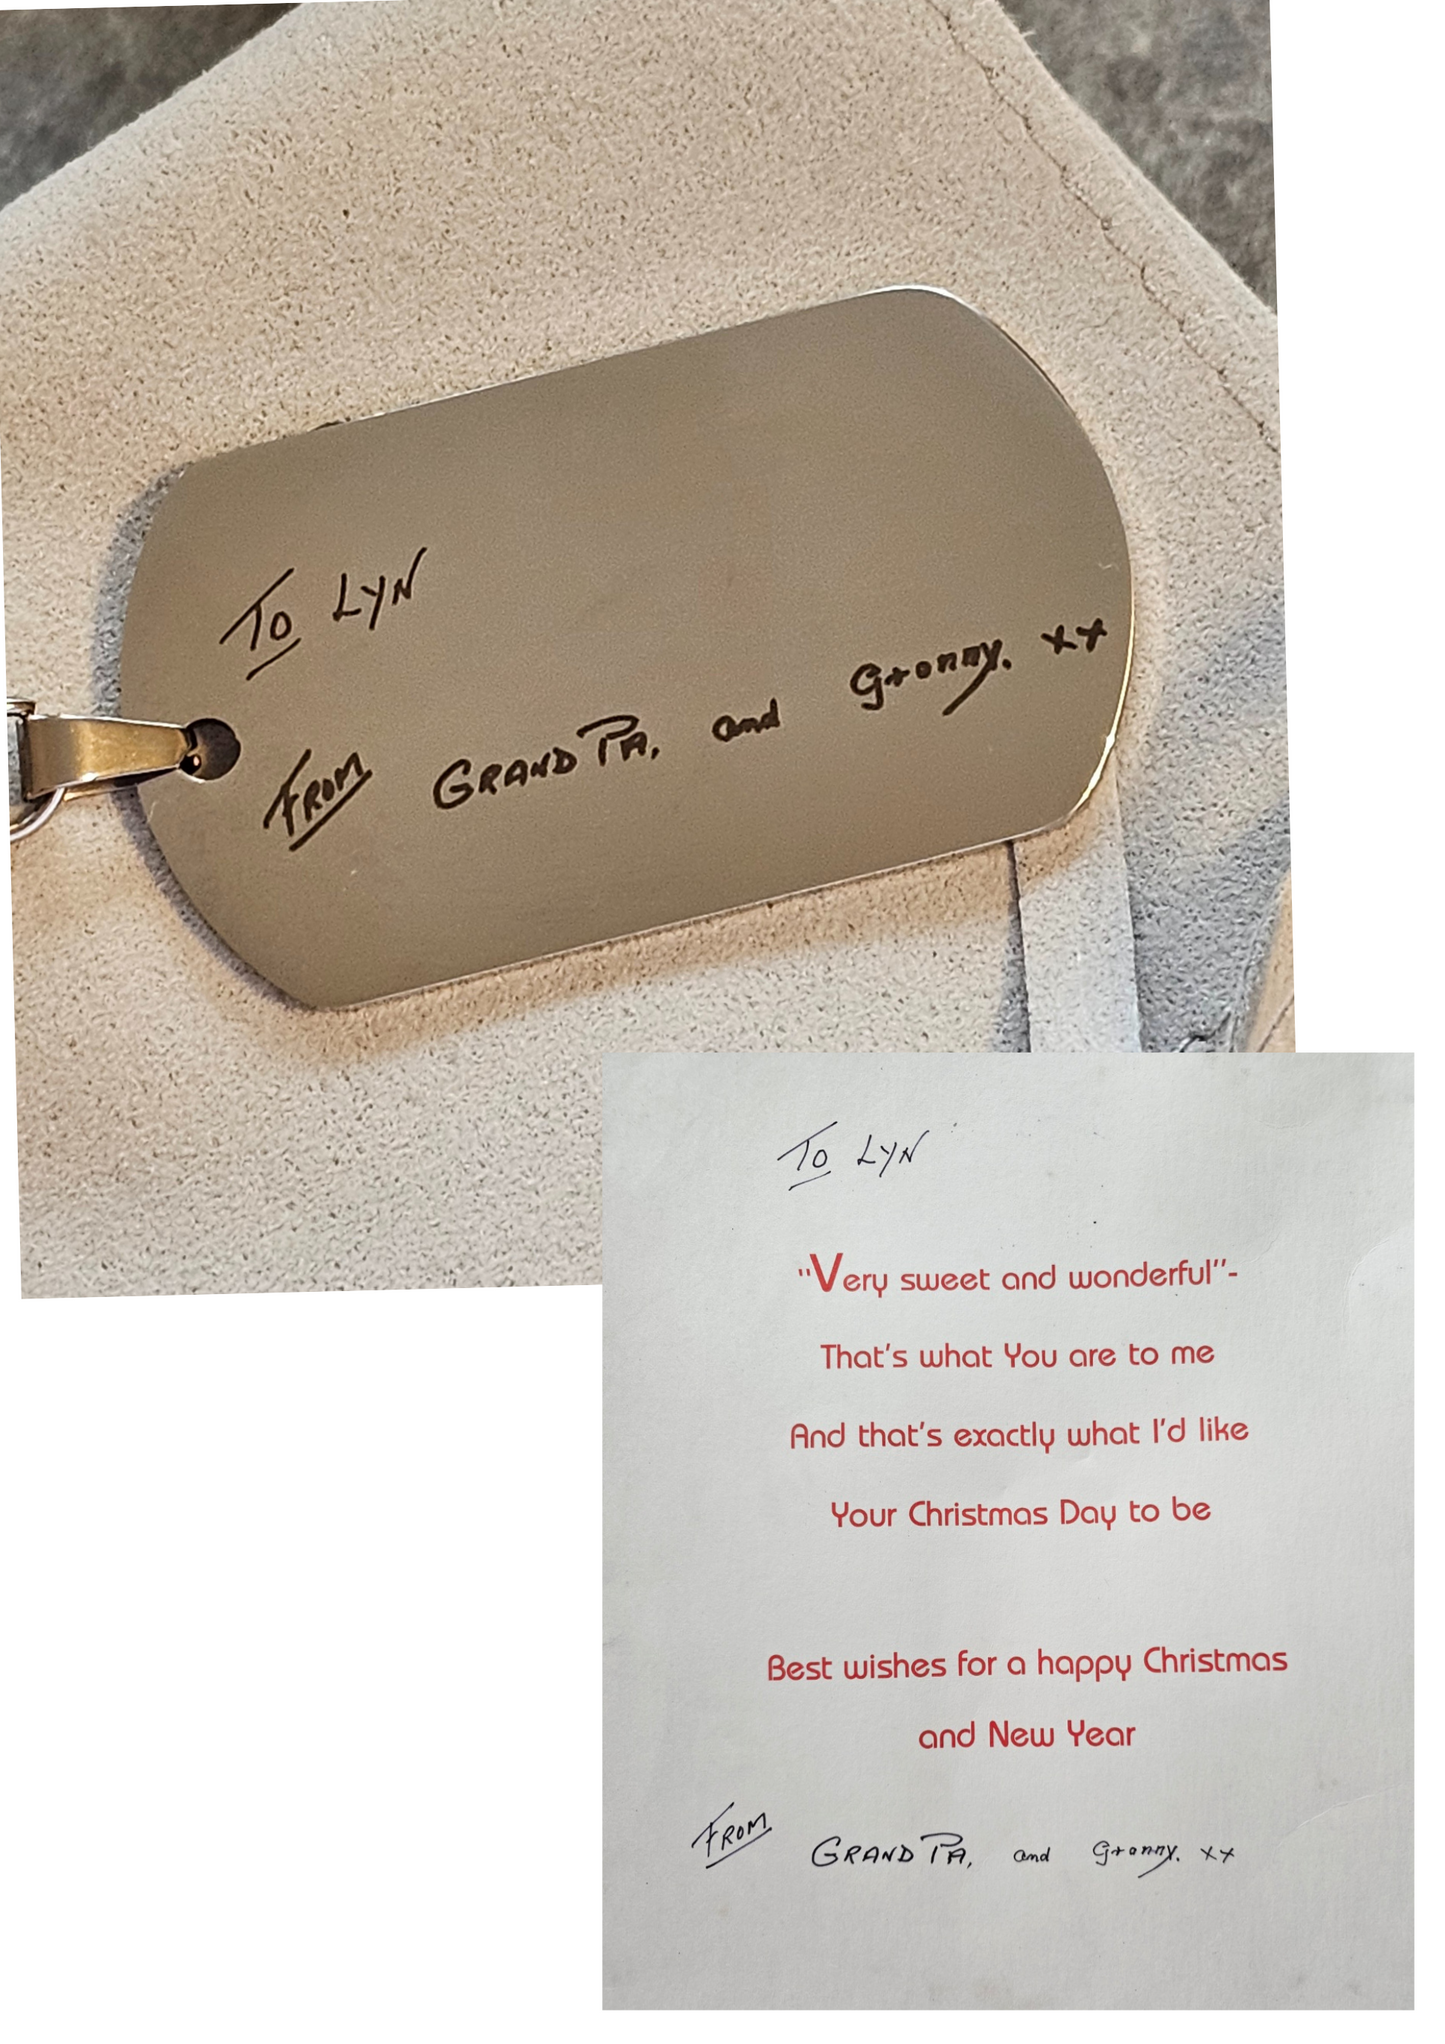 To LYN
FROM GRAND PA, and Granny. xx
To LYN
"Very sweet and wonderful"-
That's what You are to me
And that's exactly what I'd like
Your Christmas Day to be
Best wishes for a happy Christmas
and New Year
FROM GRAND PA, and Granny. xx